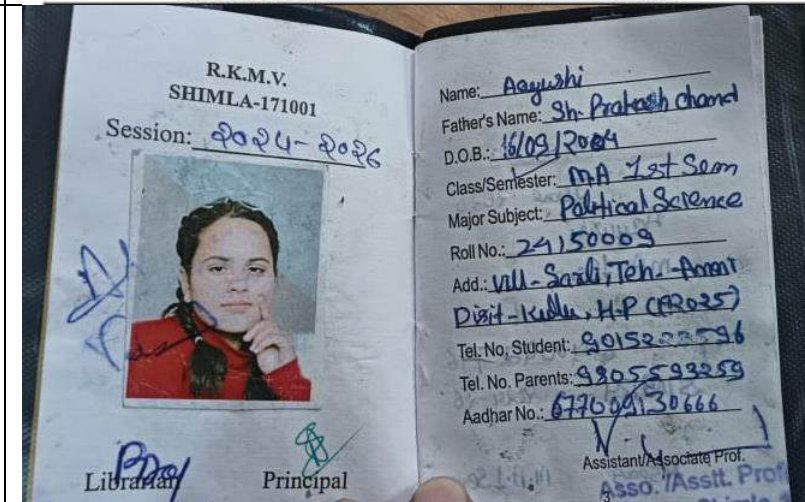 R.K.M.V.
SHIMLA-171001
Session: 2024-2026
Librarian
Principal
Name: Aayushi
Father's Name: Sh. Prakash chand
D.O.B.: 16/09/2004
Class/Semester: MA 1st Sem
Major Subject: Political Science
Roll No.: 24150009
Add.: Vill-Sarli, Teh.-
Distt-Kullu, H.P
Tel. No. Student: 9015223596
Tel. No. Parents: 9805593259
Aadhar No.: 677009130666
Assistant/Associate Prof.
Asso. /Asstt. Prof
3